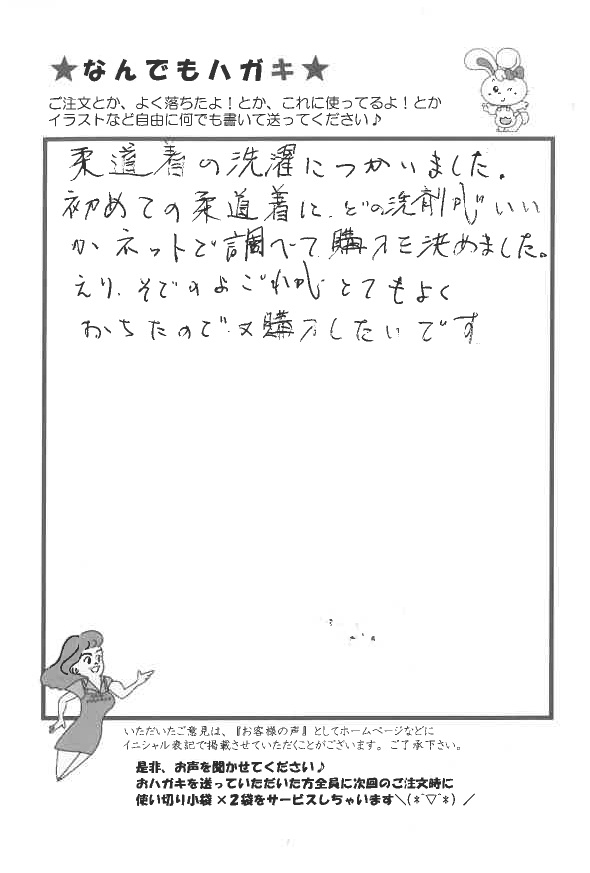 ★なんでもハガキ★
ご注文とか、よく落ちたよ！とか、これに使ってるよ！とか
イラストなど自由に何でも書いて送ってください♪
柔道着の洗濯につかいました。
初めての柔道着に、どの洗剤がいい
かネットで調べて購入を決めました。
えり、そでのよごれがとてもよく
おちたので又購入したいです
いただいたご意見は、『お客様の声』としてホームページなどに
イニシャル表記で掲載させていただくことがございます。ご了承下さい。
是非、お声を聞かせてください♪
おハガキを送っていただいた方全員に次回のご注文時に
使い切り小袋×２袋をサービスしちゃいます＼(*´▽`*)／